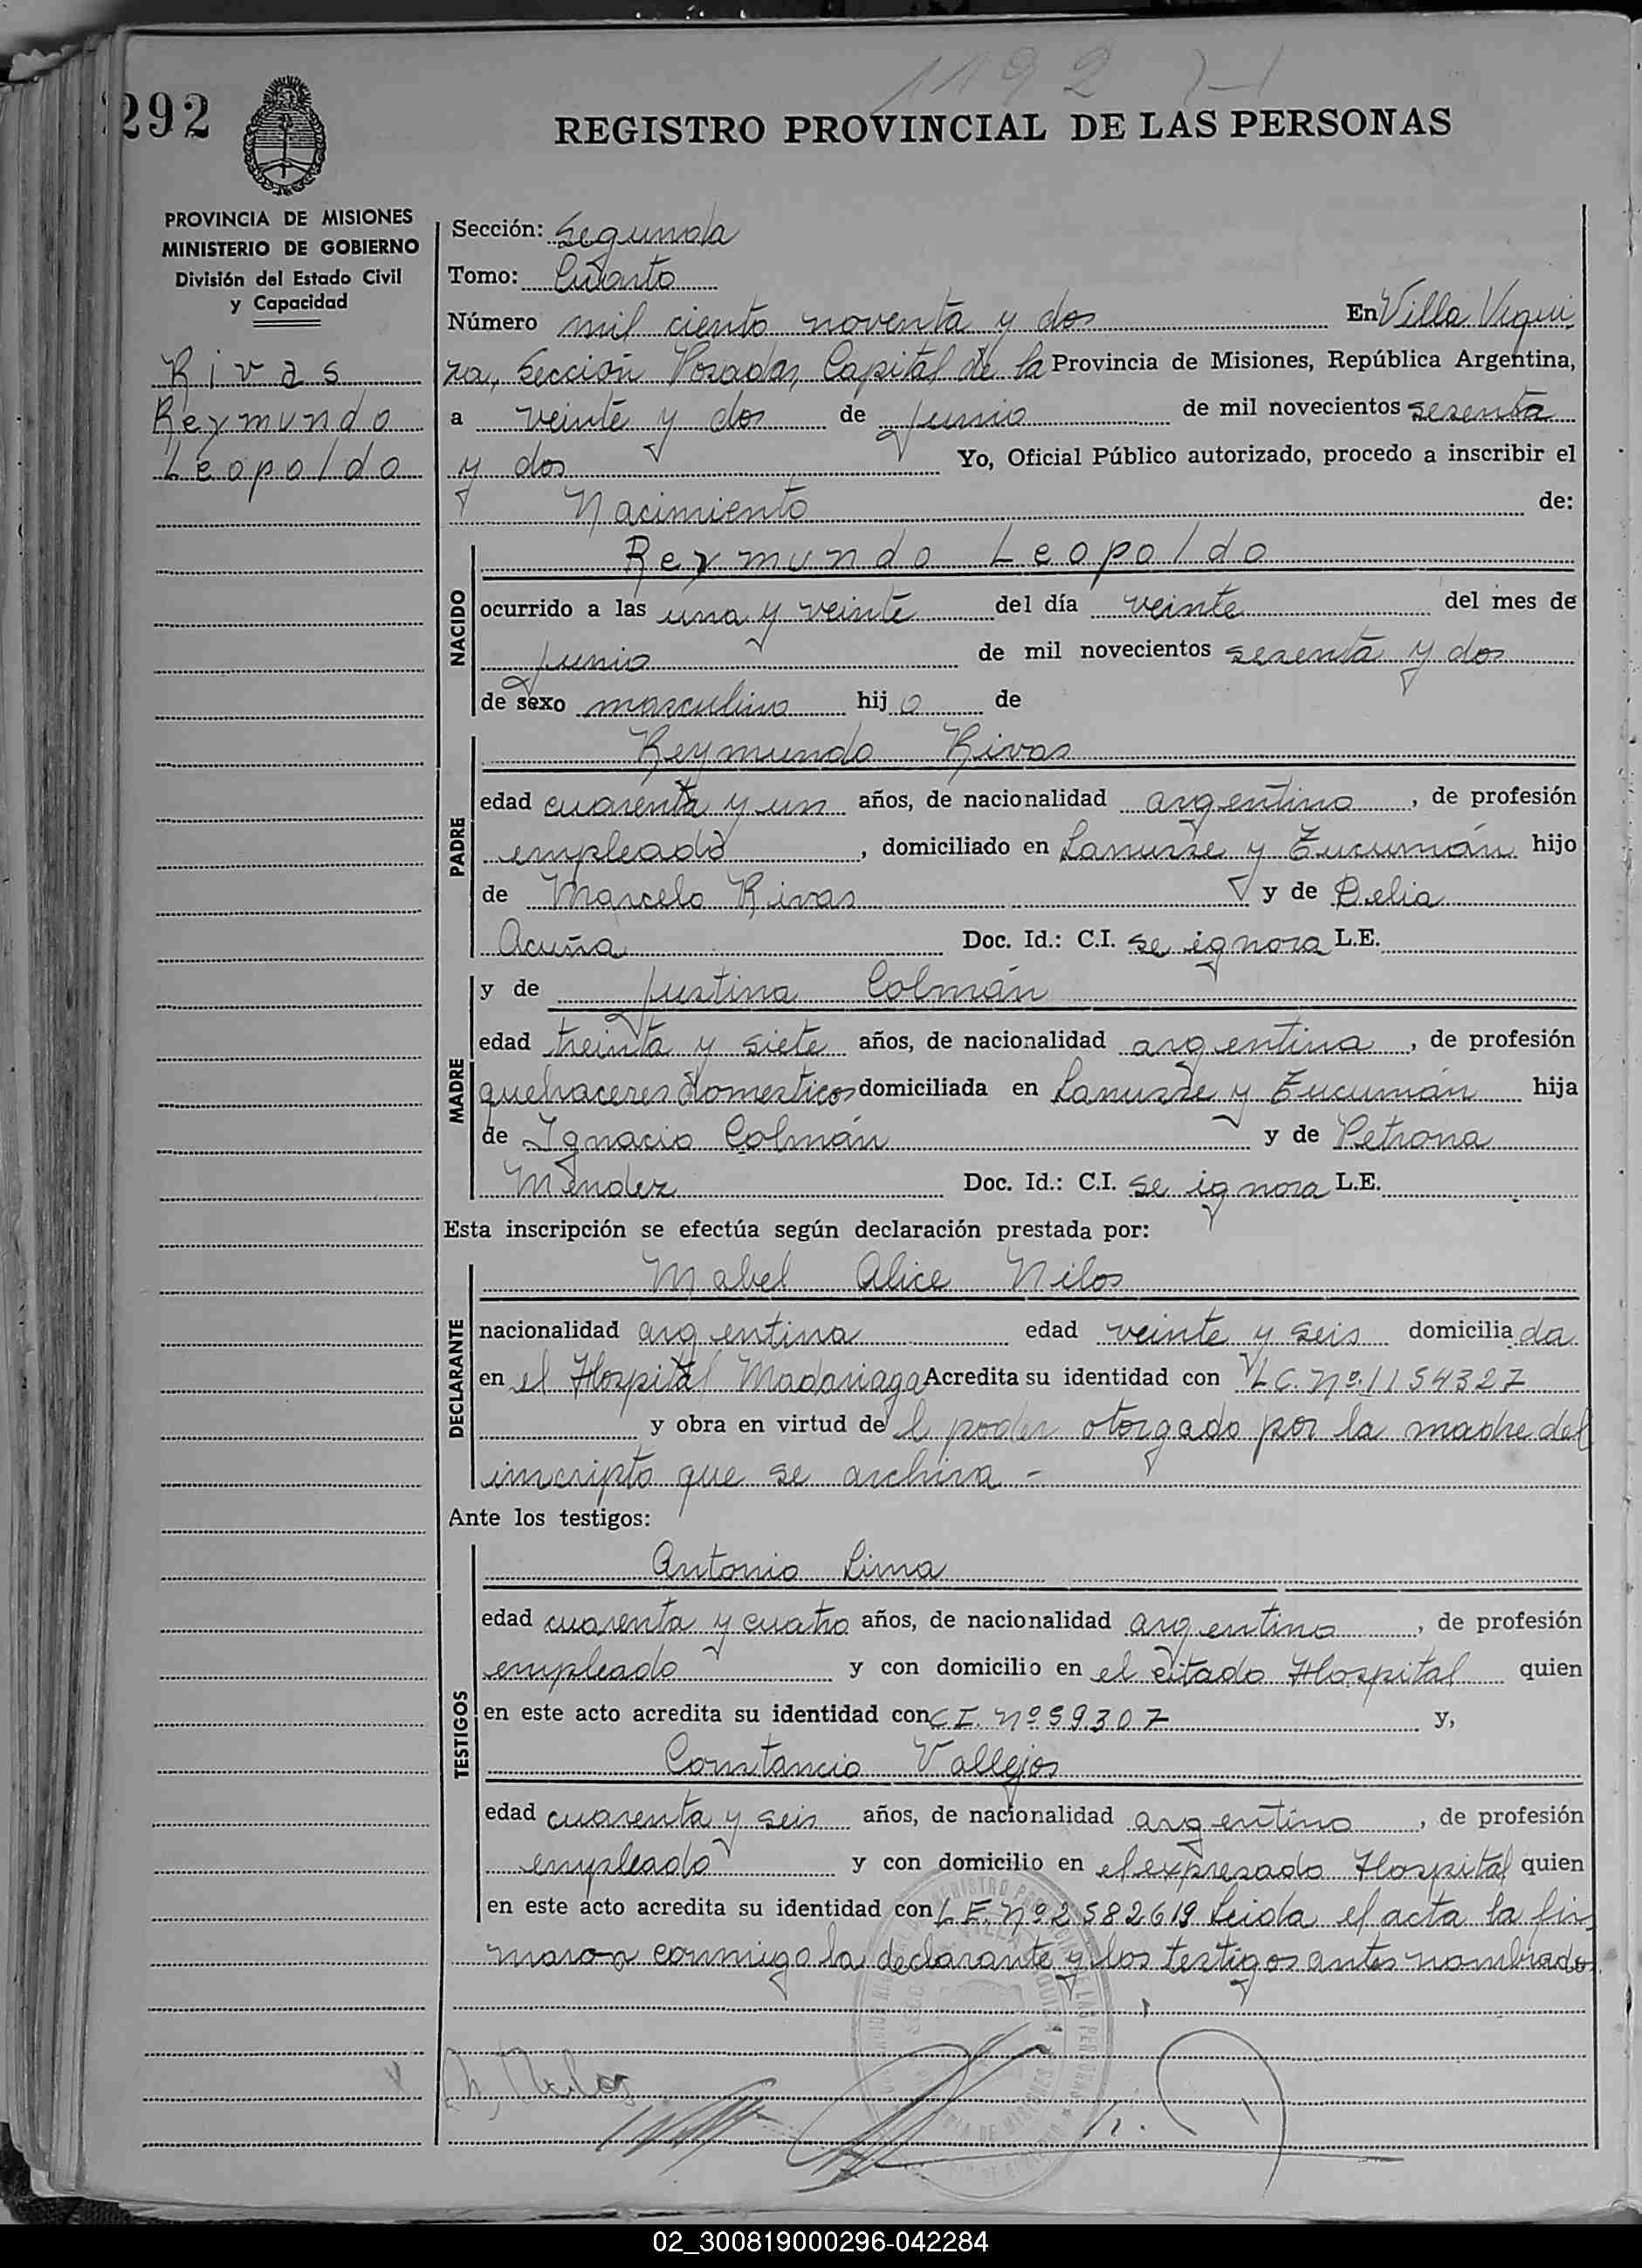 1192
292
REGISTRO PROVINCIAL DE LAS PERSONAS
PROVINCIA DE MISIONES
MINISTERIO DE GOBIERNO
División del Estado Civil
y Capacidad
Rivas
Reymundo
Leopoldo
Sección: Segunda
Tomo: Cuarto
Número mil ciento noventa y dos En Villa Urqui
za, Sección Posadas, Capital de la Provincia de Misiones, República Argentina,
a veinte y dos de junio de mil novecientos sesenta
y dos Yo, Oficial Público autorizado, procedo a inscribir el
Nacimiento de:
NACIDO
Reymundo Leopoldo
ocurrido a las una y veinte del día veinte del mes de
junio de mil novecientos sesenta y dos
de sexo masculino hijo de
PADRE
Reymundo Rivas
edad cuarenta y un años, de nacionalidad argentino, de profesión
empleado, domiciliado en Lanusse y Tucumán hijo
de Marcelo Rivas y de Delia
Acuña Doc. Id.: C.I. se ignora L.E.
MADRE
y de Justina Colmán
edad treinta y siete años, de nacionalidad argentina, de profesión
quehaceres domesticos domiciliada en Lanusse y Tucumán hija
de Ignacio Colmán y de Petrona
Mendez Doc. Id.: C.I. se ignora L.E.
Esta inscripción se efectúa según declaración prestada por:
DECLARANTE
Mabel Alice Nilos
nacionalidad argentina edad veinte y seis domiciliada
en el Hospital Madariaga Acredita su identidad con L.C. Nº 1154327
y obra en virtud del poder otorgado por la madre del
inscripto que se archiva.-
Ante los testigos:
TESTIGOS
Antonio Lima
edad cuarenta y cuatro años, de nacionalidad argentino, de profesión
empleado y con domicilio en el citado Hospital quien
en este acto acredita su identidad con C.I. Nº 59.307 y,
Constancio Vallejos
edad cuarenta y seis años, de nacionalidad argentino, de profesión
empleado y con domicilio en el expresado Hospital quien
en este acto acredita su identidad con L.E. Nº 2.582.619 Leida el acta la fir
maron conmigo la declarante y los testigos antes nombrados
02_300819000296-042284